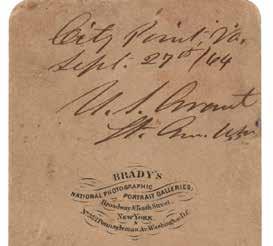 City Point, Va.
Sept. 27th /64
U. S. Grant
Lt. Gen. USA
BRADY'S
NATIONAL PHOTOGRAPHIC
PORTRAIT GALLERIES,
Broadway & Tenth Street,
NEW YORK.
&
No. 352 Pennsylvania Av. Washington, D.C.